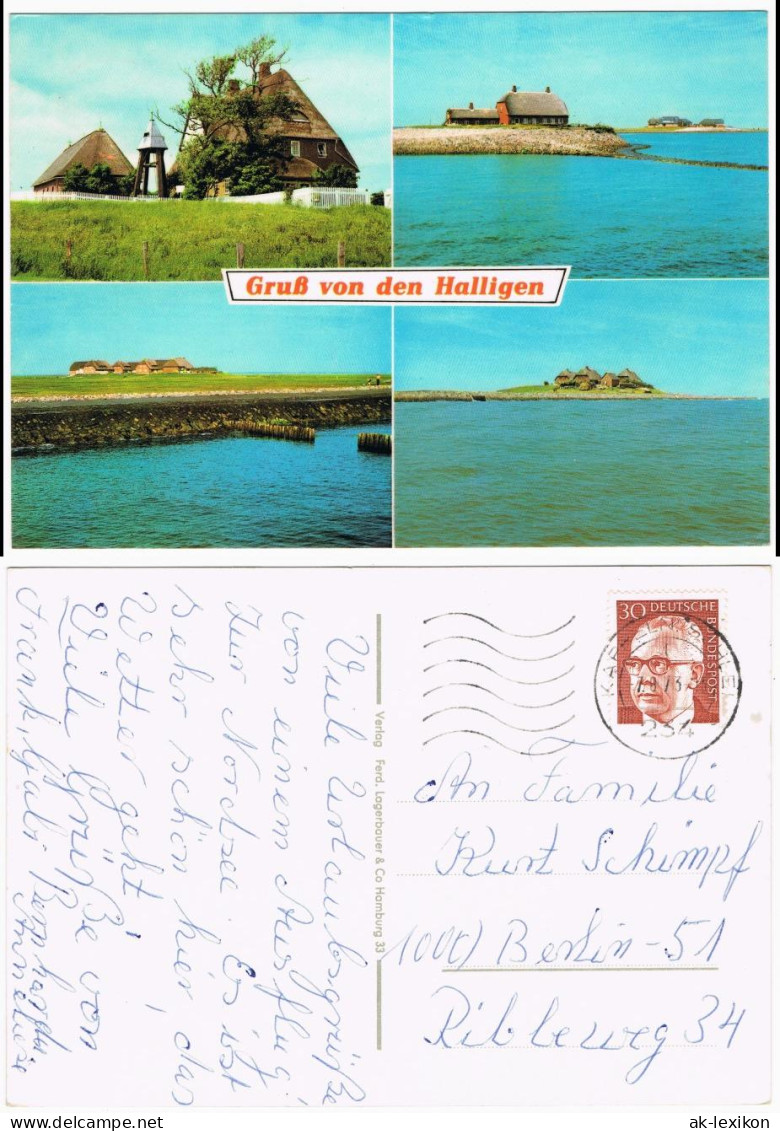 Gruß von den Halligen
Viele Urlaubsgrüße
von einem Ausflug
zur Nordsee. Es ist
sehr schön hier, das
Wetter geht!
Viele Grüße von
Frank, Gabi, Bernhard u.
Anneliese
Verlag Ferd. Lagerbauer & Co Hamburg 33
30 DEUTSCHE
BUNDESPOST
234
An Familie
Kurt Schimpf
1000) Berlin-51
Ribleweg 34
ak-lexikon